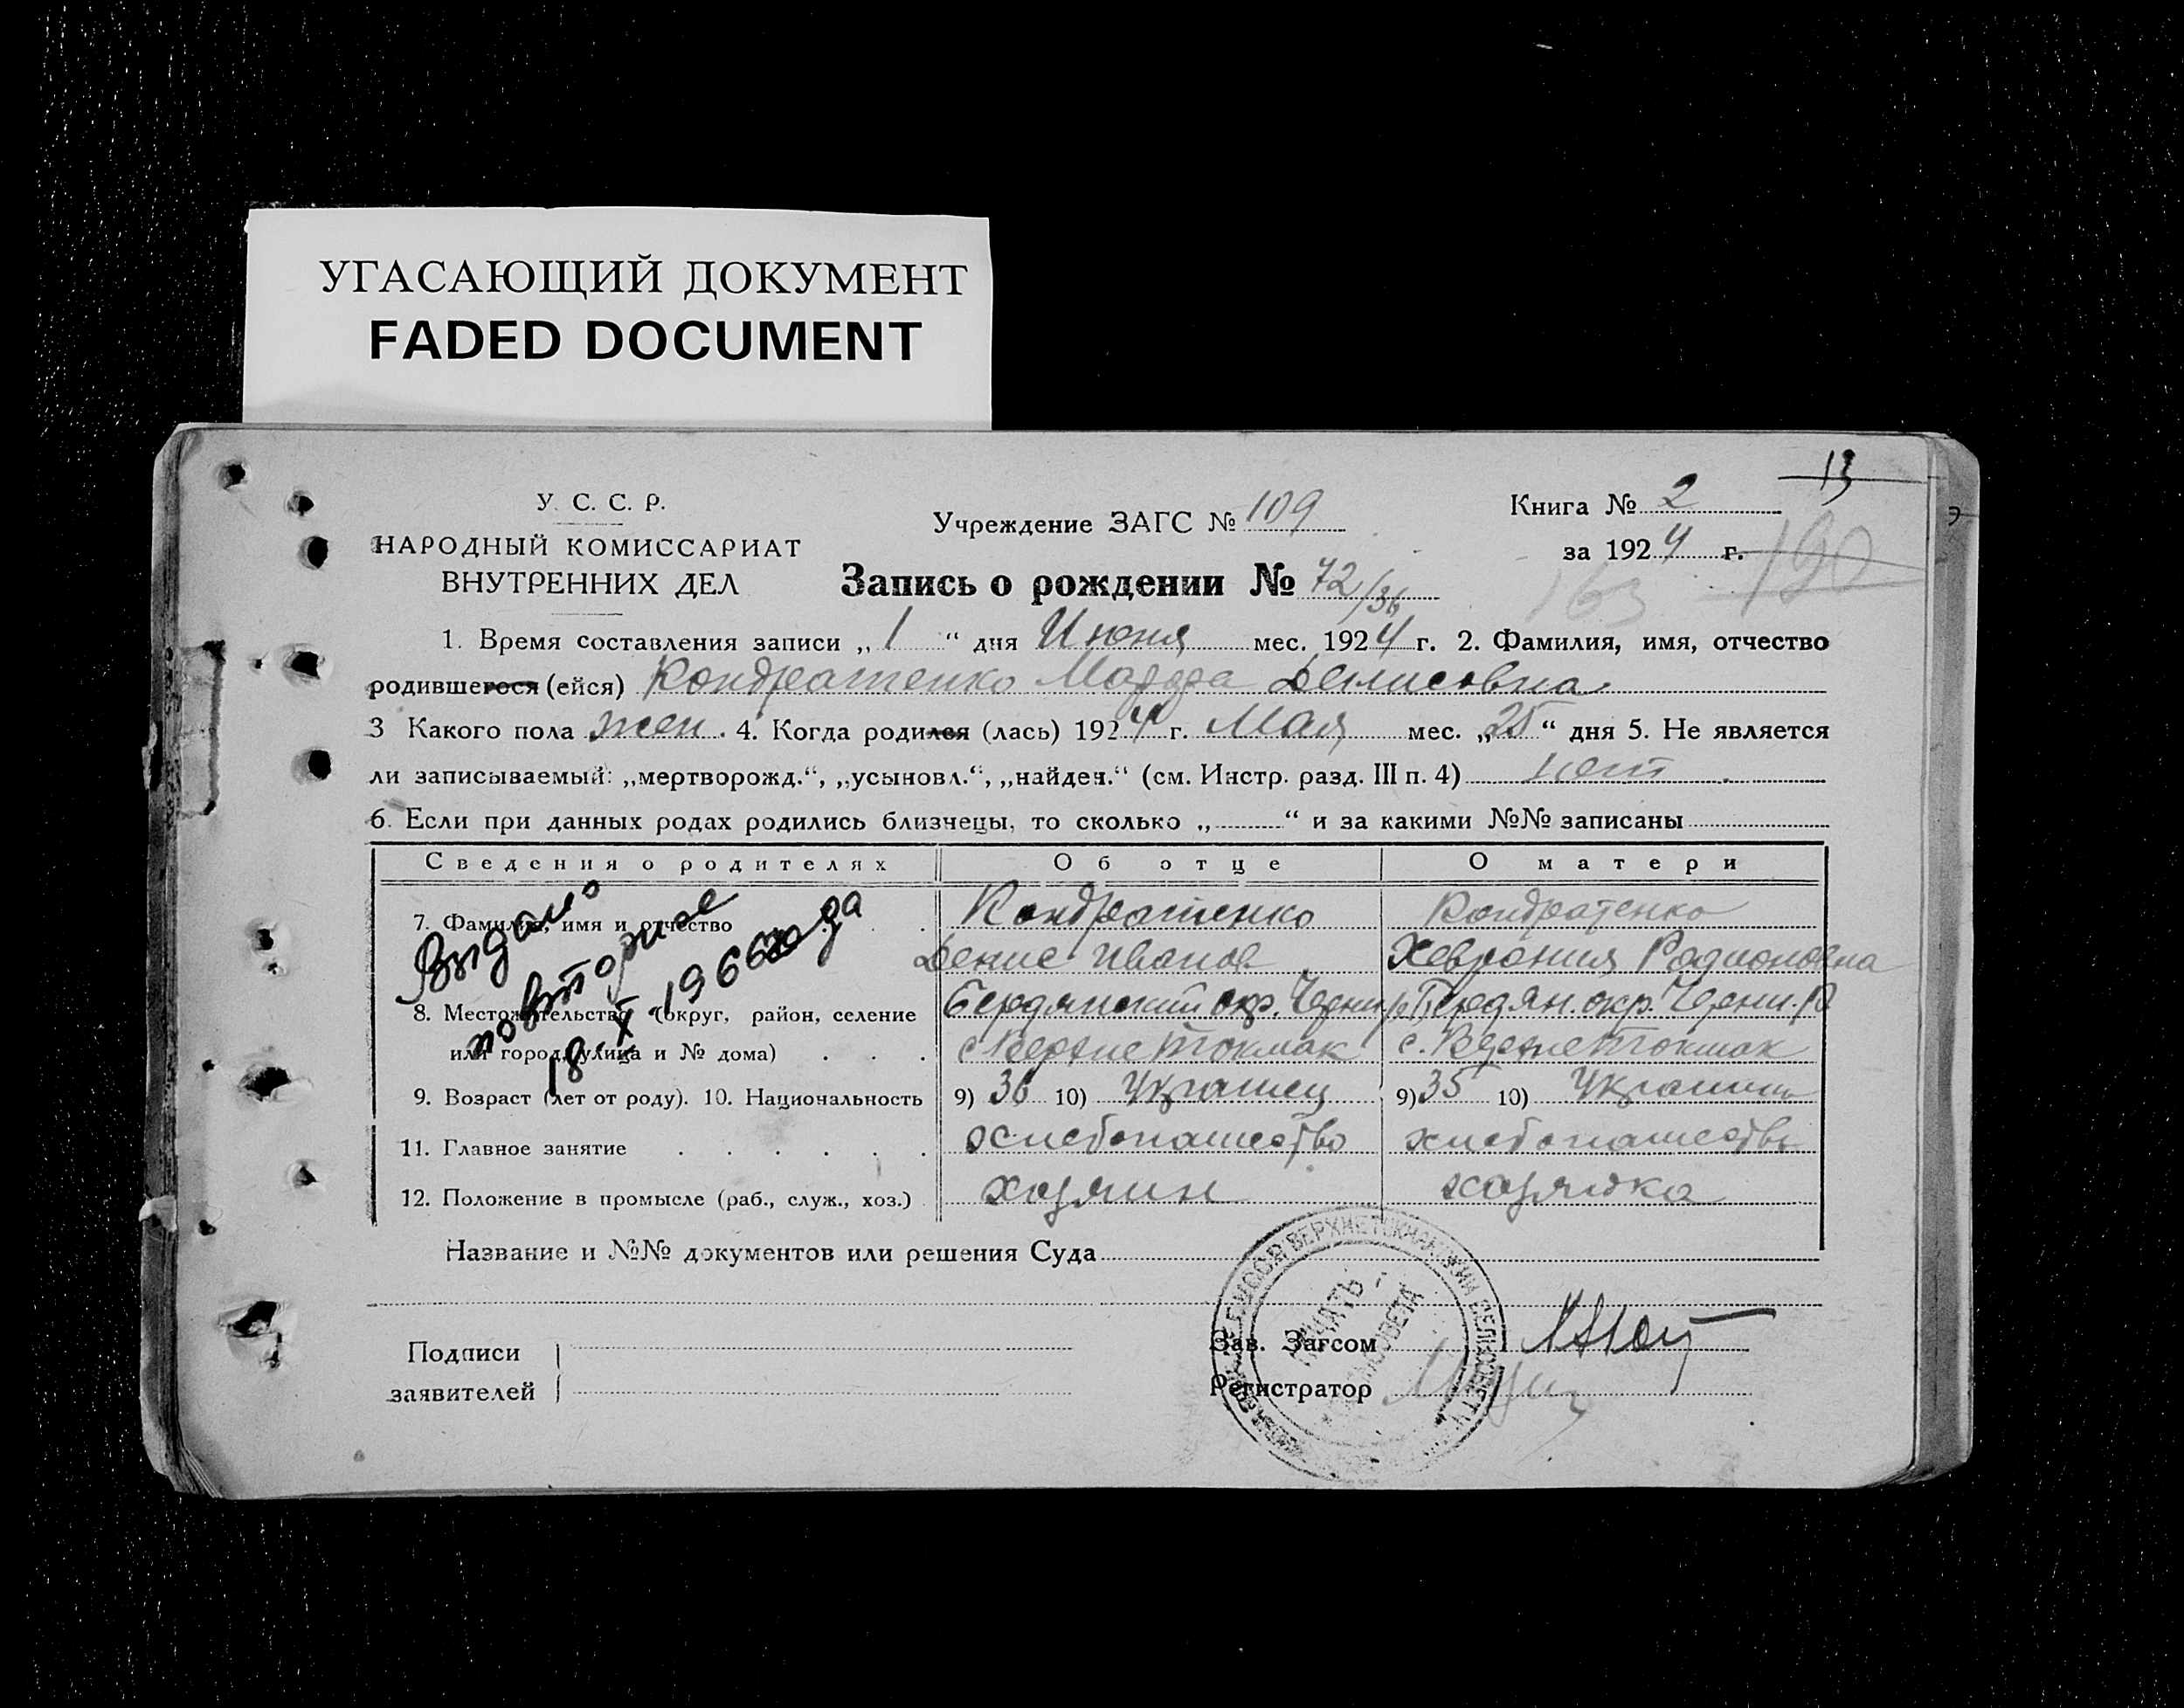 УГАСАЮЩИЙ ДОКУМЕНТ
FADED DOCUMENT
13
У. С. С. Р.
НАРОДНЫЙ КОМИССАРИАТ
ВНУТРЕННИХ ДЕЛ
Учреждение ЗАГС № 109
Книга № 2
за 1924 г.
190
163
Запись о рождении № 72/36
1. Время составления записи „1“ дня Июня мес. 1924 г. 2. Фамилия, имя, отчество
родившегося (ейся) Кондратенко Марфа Денисовна
3 Какого пола жен. 4. Когда родился (лась) 1924 г. Мая мес. „25“ дня 5. Не является
ли записываемый: „мертворожд.“, „усыновл.“, „найден.“ (см. Инстр. разд. III п. 4) нет
6. Если при данных родах родились близнецы, то сколько „ “ и за какими №№ записаны
Сведения о родителях Об отце О матери
7. Фамилия, имя и отчество Кондратенко Кондратенко
Денис Иванов Хеврония Родионовна
8. Местожительство (округ, район, селение Бердянский окр. Черни. р Бердян. окр. Черни. р
или город, улица и № дома) с. Верхне Токмак с. Верхне Токмак
9. Возраст (лет от роду). 10. Национальность 9) 36 10) Украинец 9) 35 10)
11. Главное занятие хлебопашество хлебопашество
12. Положение в промысле (раб., служ., хоз.) хозяин хозяйка
Выдано
повторное
18-X-1966 года
Название и №№ документов или решения Суда
Подписи
заявителей
Зав. Загсом
Регистратор
ПЕЧАТЬ